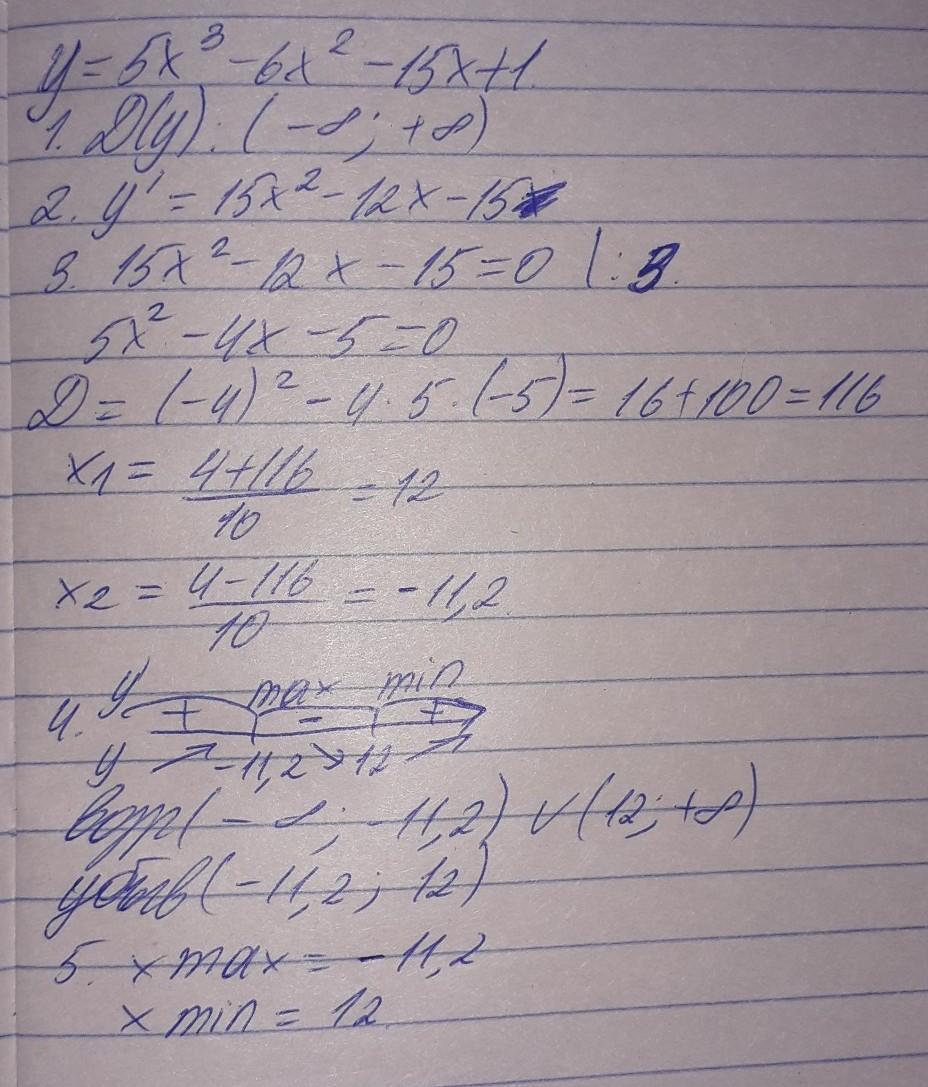 y = 5x³ - 6x² - 15x + 1.
1. D(y): (-∞; +∞)
2. y' = 15x² - 12x - 15
3. 15x² - 12x - 15 = 0 | : 3.
5x² - 4x - 5 = 0
D = (-4)² - 4 · 5 · (-5) = 16 + 100 = 116
x1 = (4 + 116)/10 = 12
x2 = (4 - 116)/10 = -11,2.
4. y' + max - min +
y ↗ -11,2 ↘ 12 ↗
возр (-∞; -11,2) ∨ (12; +∞)
убыв (-11,2; 12)
5. x max = -11,2
x min = 12.